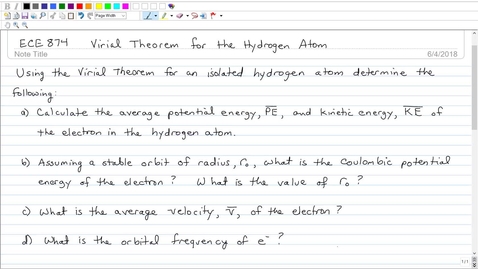 Page Width
ECE 874 Virial Theorem for the Hydrogen Atom
Note Title
6/4/2018
Using the Virial Theorem for an isolated hydrogen atom determine the
following:
a) Calculate the average potential energy, P̅E̅, and kinetic energy, K̅E̅ of
the electron in the hydrogen atom.
b) Assuming a stable orbit of radius, r₀, what is the coulombic potential
energy of the electron? What is the value of r₀?
c) What is the average velocity, v̅, of the electron?
d) What is the orbital frequency of e⁻?
1/1